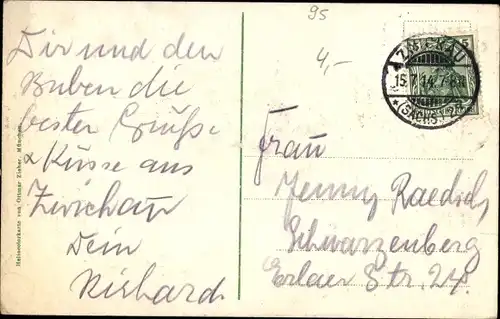 Dir und den
Buben die
besten Grüße
& Küsse aus
Zwickau
Dein
Richard
95
4,-
5
ZWICKAU
15.7.14. 7-8N.
* (SACHS.) 2 *
Frau
Jenny Raedisch
Schwarzenberg
Erlaer Str. 24.
Heliocolorkarte von Ottmar Zieher, München